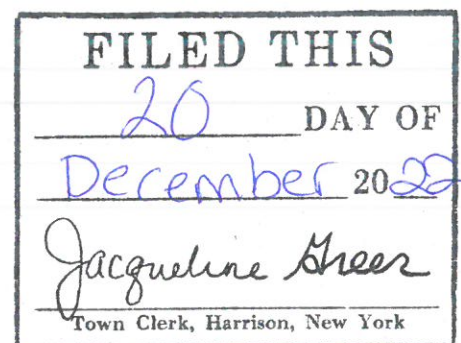 FILED THIS
20 DAY OF
December 2022
Jacqueline Greer
Town Clerk, Harrison, New York